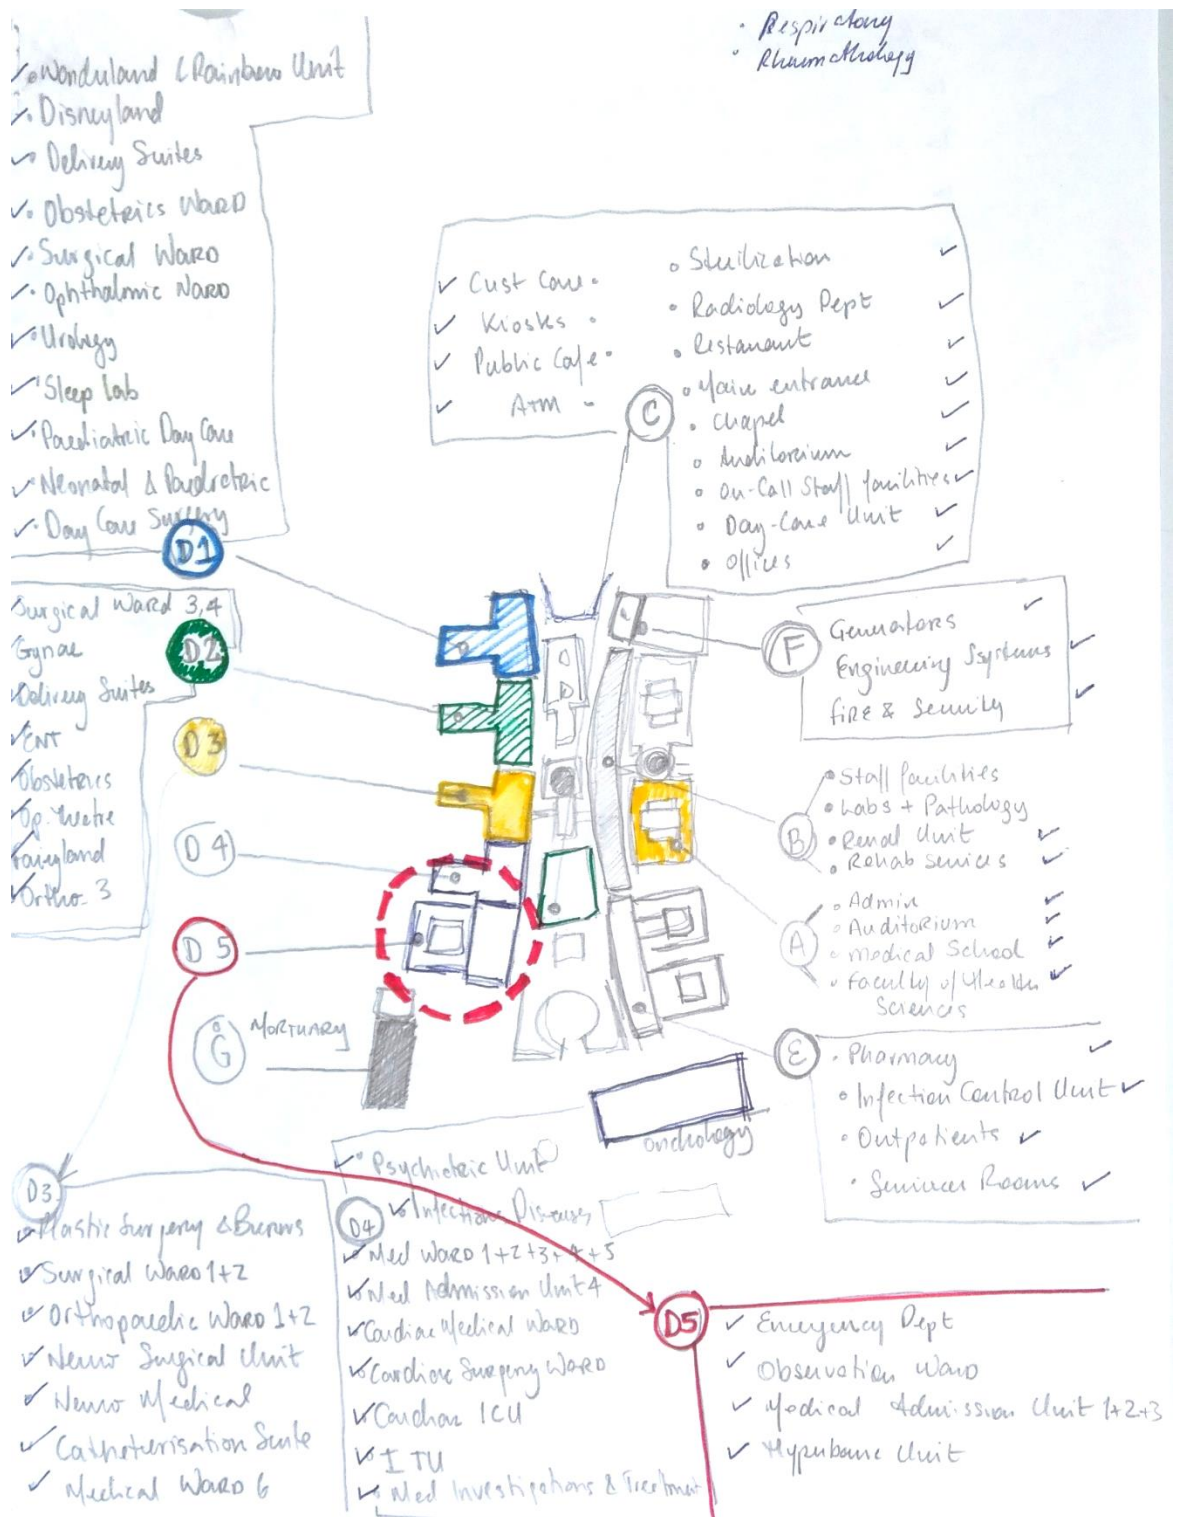 Respiratory
Rhumathology
Wonduland & Rainbow Unit
Disneyland
Delivery Suites
Obstetrics WARD
Surgical WARD
Ophthalmic WARD
Urology
Sleep Lab
Paediatric Day Care
Neonatal & Paediatric
Day Care Surgery
D1
Surgical Ward 3,4
Gynae
D2
Delivery Suites
ENT
Obstetrics
Op. Theatre
Fairyland
Ortho 3
D3
D4
D5
G
MORTUARY
Cust Care
Kiosks
Public Cafe
ATM
C
Sterilization
Radiology Dept
Restaurant
Main entrance
Chapel
Auditorium
On-Call Staff facilities
Day-Care Unit
Offices
F
Generators
Engineering Systems
FIRE & Security
B
Staff facilities
Labs + Pathology
Renal Unit
Rehab Services
A
Admin
Auditorium
Medical School
Faculty of Health
Sciences
E
Pharmacy
Infection Control Unit
Outpatients
Seminar Rooms
Onchology
D3
Plastic Surgery & Burns
Surgical WARD 1+2
Orthopaedic WARD 1+2
Neuro Surgical Unit
Neuro Medical
Catheterisation Suite
Medical WARD 6
Psychiatric Unit
D4
Infectious Diseases
Med WARD 1+2+3+4+5
Med Admission Unit 4
Cardiac Medical WARD
Cardiac Surgery WARD
Cardiac ICU
ITU
Med Investigations & Treatment
D5
Emergency Dept
Observation WARD
Medical Admission Unit 1+2+3
Hyperbaric Unit